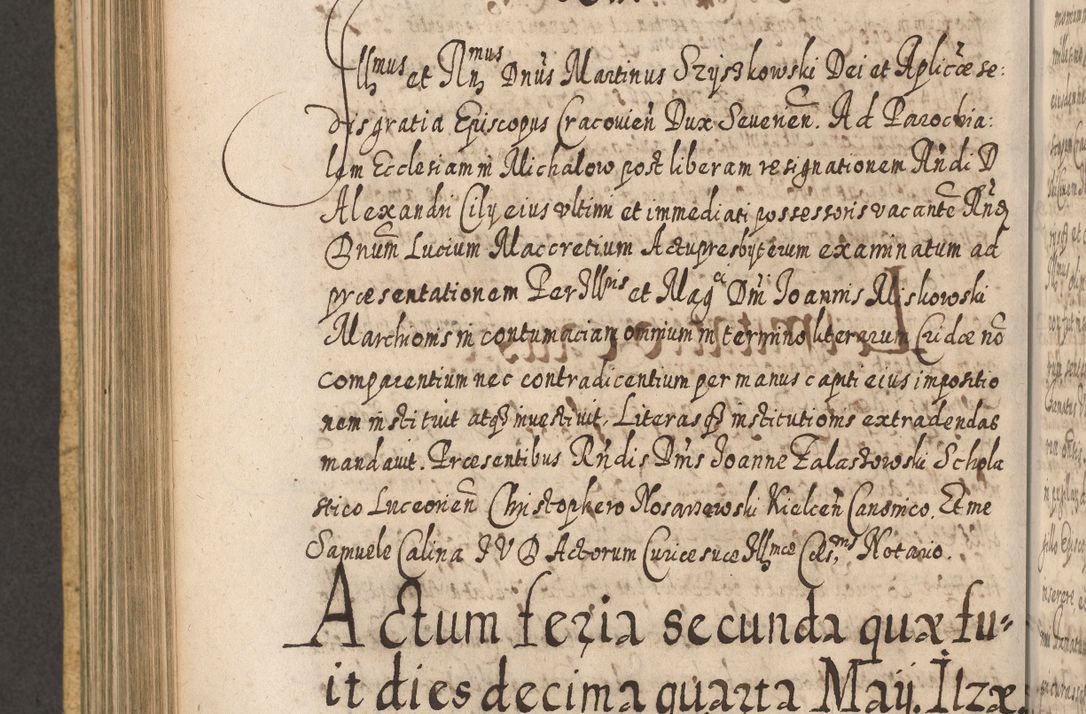 Illmus et Rnmus Dnus Martinus Szyszkowski Dei et Aplicæ se:
dis gratia Episcopus Cracovien Dux Severien. Ad Parochia:
lem Ecclesiam in Michalow post liberam resignationem Rndi D
Alexandri Cily eius ultimi et immediati possessoris vacante Rnd
Dnum Lucium Maccretium Actupresbyterum examinatum ad
præsentationem Per Illris et Mag Dni Joannis Miskowski
Marchionis in contumaciam omnium in termino literarum Cridæ no
comparentium nec contradicentium per manus capti eius impositio
nem instituit atq investivit, Literasq institutionis extradendas
mandavit. Præsentibus Rndis Dnis Joanne Zalaszowski Schola
stico Luceorien Christophero Nosarzewski Kielcen Canonico. Et me
Samuele Calina JUD Actorum Curiæ suæ Illmæ Notario.
Actum feria secunda quæ fu-
it dies decima quarta Maij. Ilzæ.